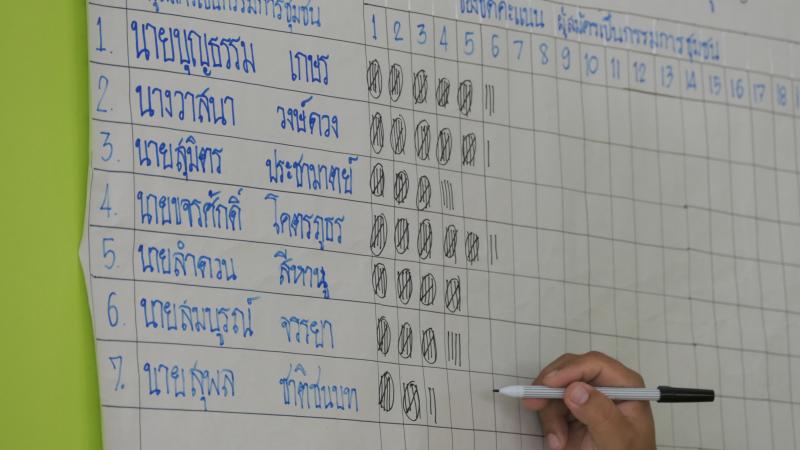 ผู้สมัครเป็นกรรมการชุมชน ของขีดคะแนน ผู้สมัครเป็นกรรมการชุมชน
1 2 3 4 5 6 7 8 9 10 11 12 13 14 15 16 17 18
1. นายบุญธรรม เกษร
2. นางวาสนา วงษ์ดวง
3. นายสุมิตร ประชามาตย์
4. นายขจรศักดิ์ โคตรภูธร
5. นายลำดวน สีหานู
6. นายสมบูรณ์ จรรยา
7. นายสุพล ชาติชนบท